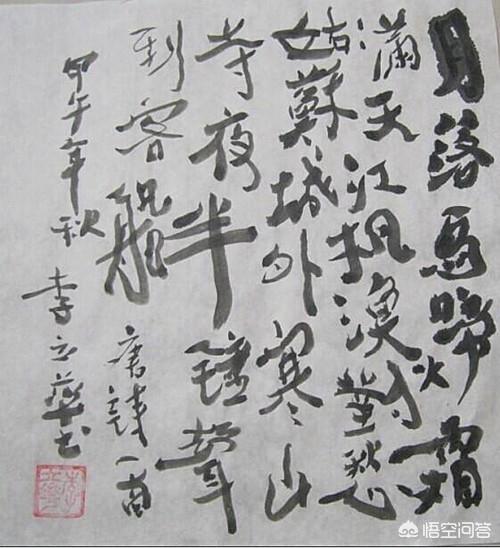 月落烏啼霜
滿天江楓漁火對愁眠
姑蘇城外寒山
寺夜半鐘聲
到客船 唐詩一首
甲午年秋 李立 书
悟空问答